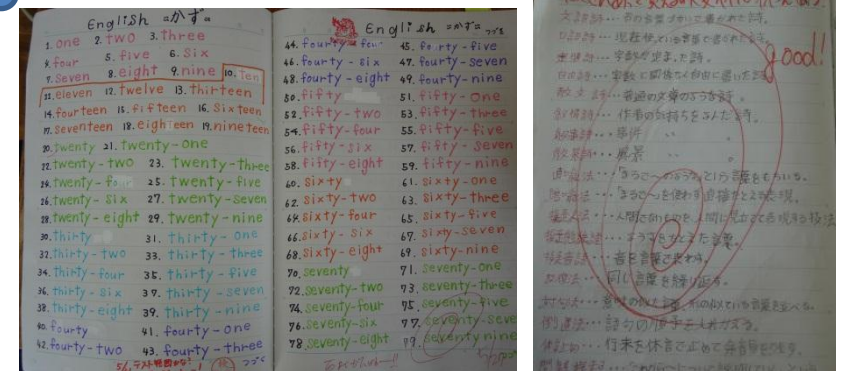 English =かず=
1. one 2. two 3. three
4. four 5. five 6. six
7. seven 8. eight 9. nine 10. Ten
11. eleven 12. twelve 13. thirteen
14. fourteen 15. fifteen 16. sixteen
17. seventeen 18. eighteen 19. nineteen
20. twenty 21. twenty-one
22. twenty-two 23. twenty-three
24. twenty-four 25. twenty-five
26. twenty-six 27. twenty-seven
28. twenty-eight 29. twenty-nine
30. thirty 31. thirty-one
32. thirty-two 33. thirty-three
34. thirty-four 35. thirty-five
36. thirty-six 37. thirty-seven
38. thirty-eight 39. thirty-nine
40. fourty 41. fourty-one
42. fourty-two 43. fourty-three
つづく
English =かず= つづき
44. fourty-four 45. fourty-five
46. fourty-six 47. fourty-seven
48. fourty-eight 49. fourty-nine
50. fifty 51. fifty-one
52. fifty-two 53. fifty-three
54. fifty-four 55. fifty-five
56. fifty-six 57. fifty-seven
58. fifty-eight 59. fifty-nine
60. sixty 61. sixty-one
62. sixty-two 63. sixty-three
64. sixty-four 65. sixty-five
66. sixty-six 67. sixty-seven
68. sixty-eight 69. sixty-nine
70. seventy 71. seventy-one
72. seventy-two 73. seventy-three
74. seventy-four 75. seventy-five
76. seventy-six 77. seventy-seven
78. seventy-eight 79. seventy-nine
文語詩…昔の言葉づかいで書かれた詩。
口語詩…現在使っている言葉で書かれた詩。
good!
定型詩…字数が決まった詩。
自由詩…字数に関係なく自由に書いた詩。
散文詩…普通の文章のような詩。
叙情詩…作者の気持ちをよんだ詩。
叙事詩…
叙景詩…風景
直喩法…「まるで〜のような」という言葉をもちいる。
隠喩法…「まるで〜」を使わず直接たとえる表現。
擬人法…人間でないものを、人間に見立てて表現する技法
擬態語…ようすをたとえた言葉。
擬音語…音を言葉で表わす。
反復法…同じ言葉を繰り返す。
対句法…
倒置法…語句の順序を入れかえる。
体言止め…行末を体言で止めて